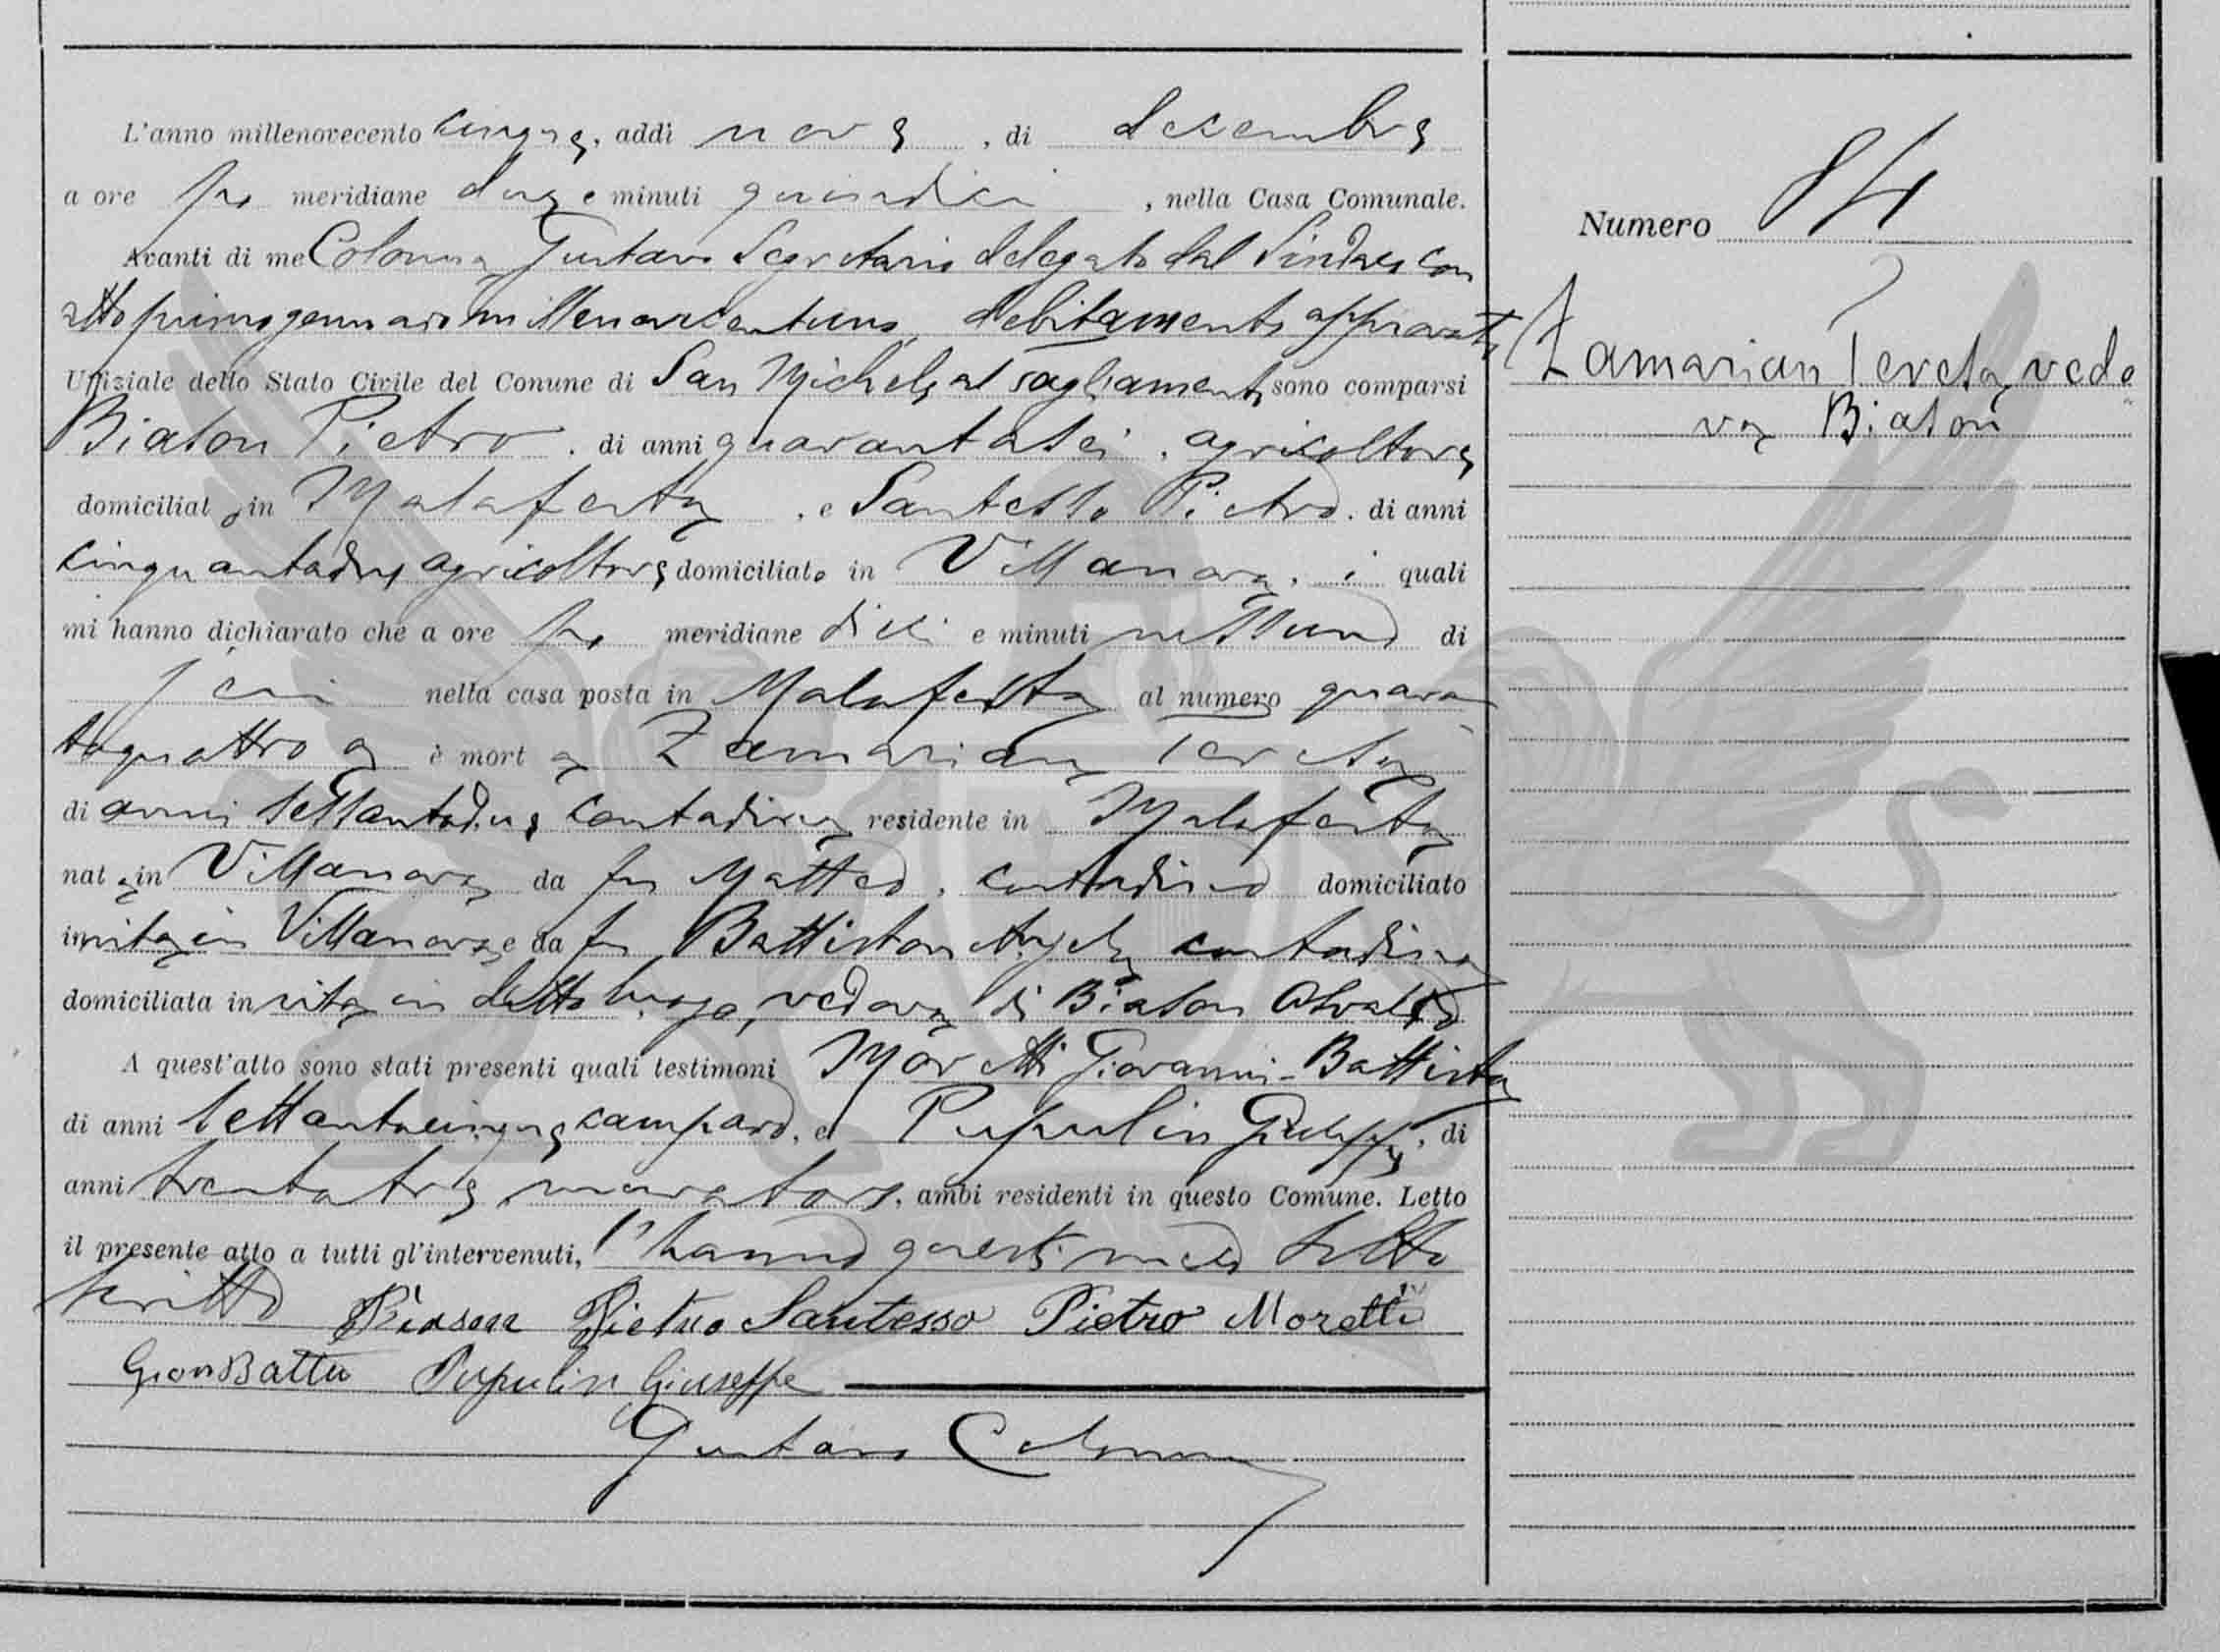 L'anno millenovecento cinque, addì nove, di decembre
a ore po meridiane due e minuti quindici, nella Casa Comunale.
Avanti di me Colonna Gustavo Segretario delegato dal Sindaco con
atto primo gennaio millenovecentuno, debitamente approvato
Uffiziale dello Stato Civile del Comune di San Michele al Tagliamento sono comparsi
Biason Pietro, di anni quarantasei, agricoltore
domiciliato in Malafesta, e Santesso Pietro, di anni
cinquantadue, agricoltore domiciliato in Villanova, i quali
mi hanno dichiarato che a ore po meridiane dieci e minuti nessuno di
jeri nella casa posta in Malafesta al numero quaran
taquattro a è morta Zamarian Teresa
di anni settantadue, contadina residente in Malafesta
nata in Villanova da fu Matteo, contadino domiciliato
in vita in Villanova e da fu Battiston Angela contadina
domiciliata in vita in detto luogo, vedova di Biason Osvaldo
A quest'atto sono stati presenti quali testimoni Moretti Giovanni-Battista
di anni settantacinque, camparo, e Pupulin Giuseppe, di
anni trentatre, muratore, ambi residenti in questo Comune. Letto
il presente atto a tutti gl'intervenuti, l'hanno questi meco sotto
scritto Biason Pietro Santesso Pietro Moretti
Giov Batta Pupulin Giuseppe
Gustavo Colonna
Numero 84
Zamarian Teresa, vedo
va Biason